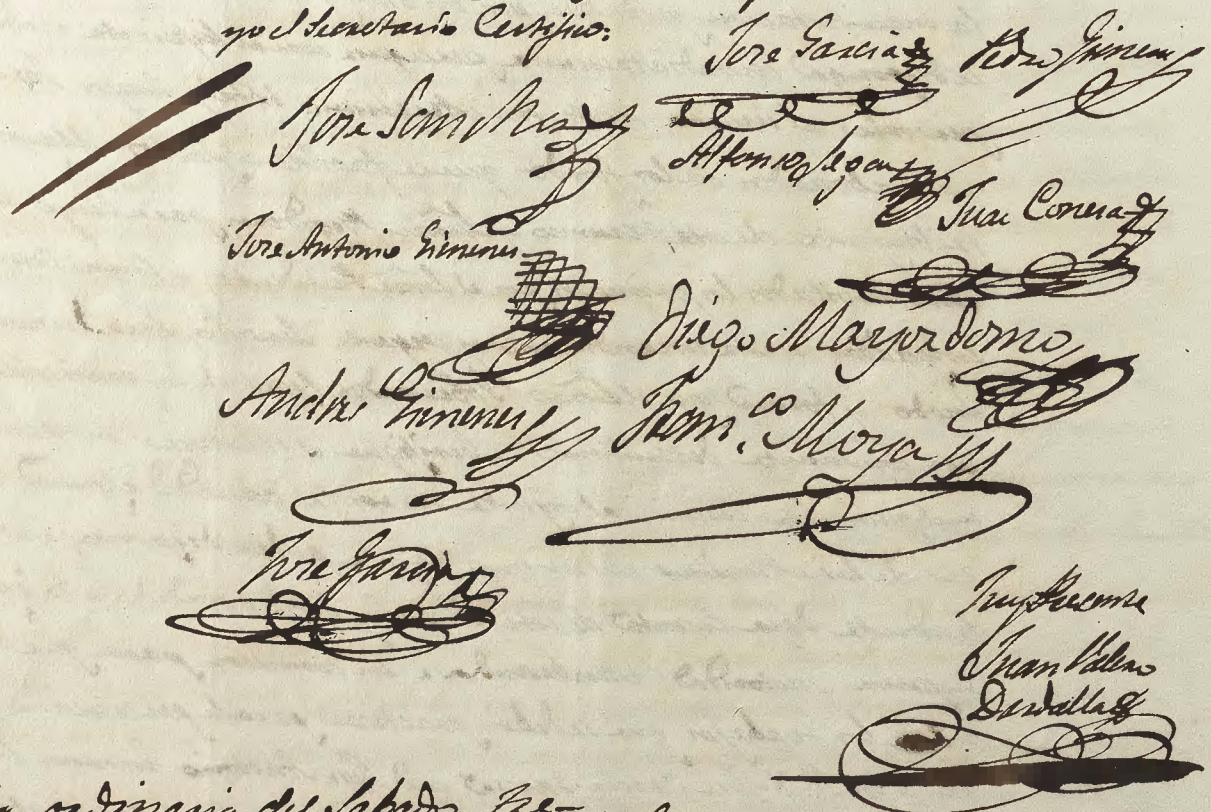 yo el Secretario Certifico:
Jose Garcia
Pedro Gimenez
Jose Sanchez
Alfonso
Juan Correa
Jose Antonio Gimenez
Diego Mayordomo
Andres Gimenez
Franco. Moya
Jose Garcia
Fuy Presente
Juan Valero
Dardalla
ordinaria del Sabado